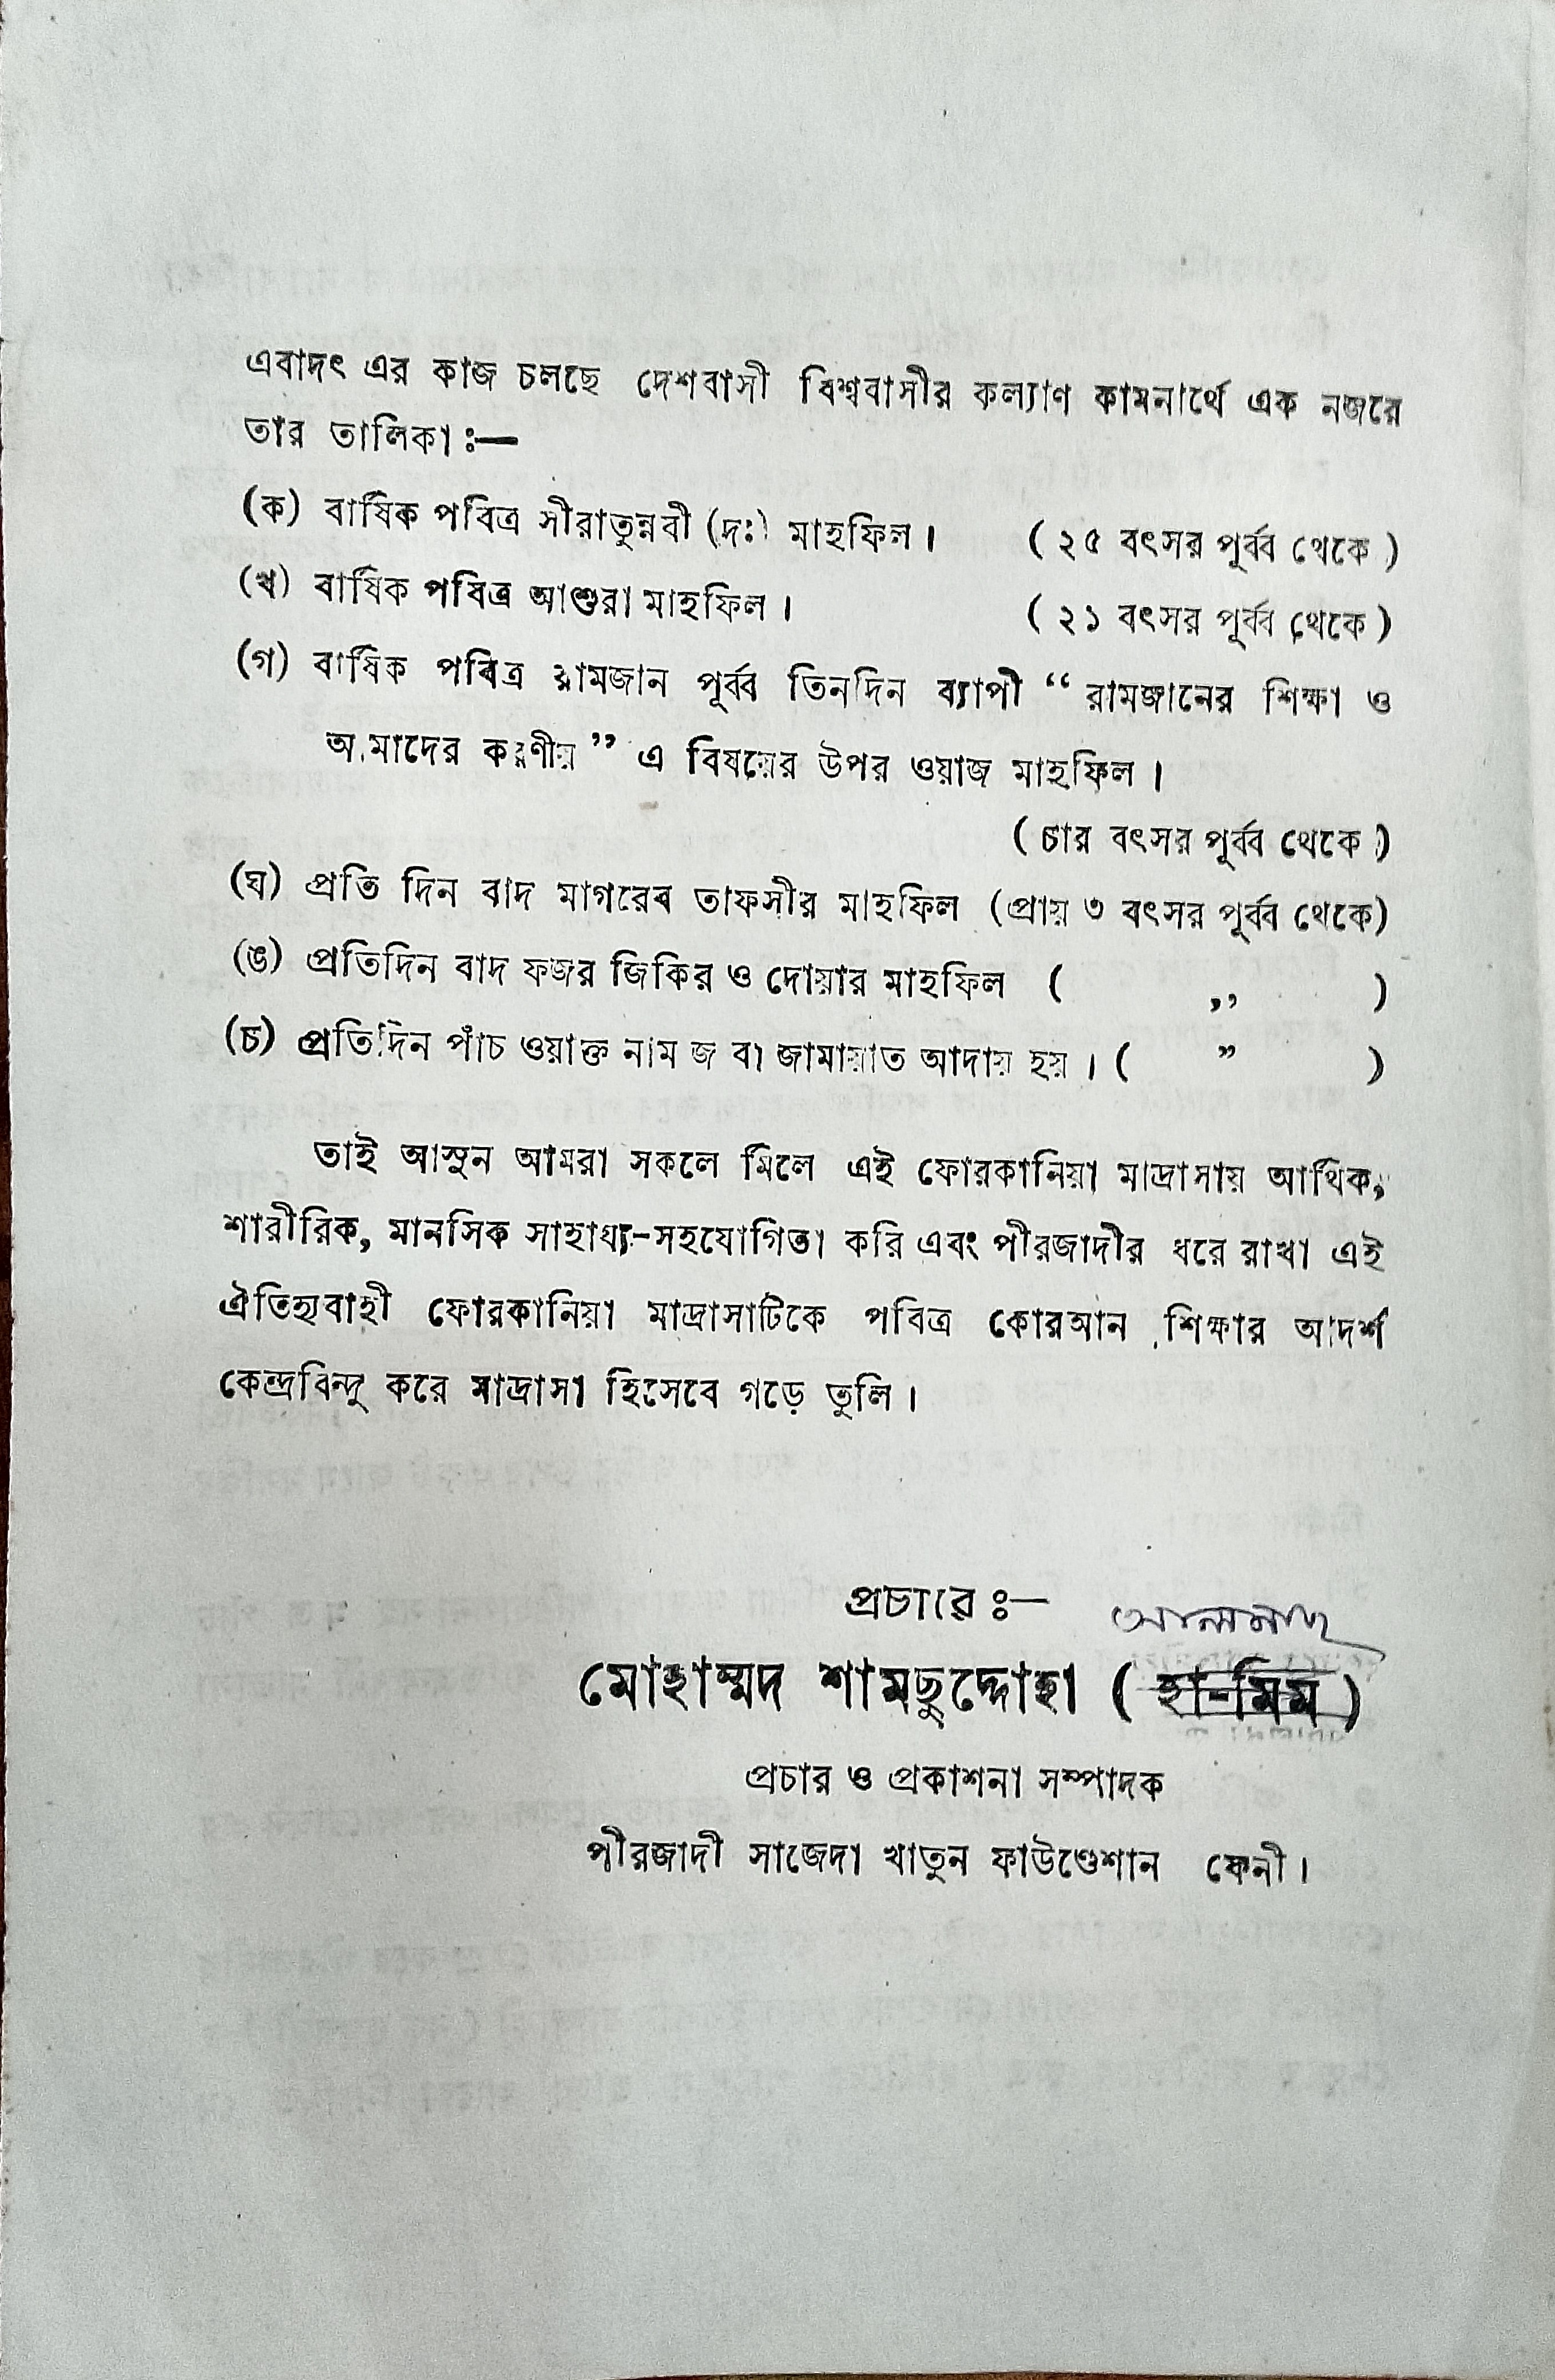 এবাদৎ এর কাজ চলছে দেশবাসী বিশ্ববাসীর কল্যাণ কামনার্থে এক নজরে
তার তালিকা ঃ—
(ক) বার্ষিক পবিত্র সীরাতুন্নবী (দঃ) মাহফিল। ( ২৫ বৎসর পূর্ব্ব থেকে )
(খ) বার্ষিক পবিত্র আশুরা মাহফিল। ( ২১ বৎসর পূর্ব্ব থেকে )
(গ) বার্ষিক পবিত্র রামজান পূর্ব্ব তিনদিন ব্যাপী “ রামজানের শিক্ষা ও
আমাদের করণীয় ” এ বিষয়ের উপর ওয়াজ মাহফিল।
( চার বৎসর পূর্ব্ব থেকে )
(ঘ) প্রতি দিন বাদ মাগরেব তাফসীর মাহফিল (প্রায় ৩ বৎসর পূর্ব্ব থেকে)
(ঙ) প্রতিদিন বাদ ফজর জিকির ও দোয়ার মাহফিল ( ,, )
(চ) প্রতিদিন পাঁচ ওয়াক্ত নামাজ বা জামায়াত আদায় হয়। ( ” )
তাই আসুন আমরা সকলে মিলে এই ফোরকানিয়া মাদ্রাসায় আর্থিক,
শারীরিক, মানসিক সাহায্য-সহযোগিতা করি এবং পীরজাদীর ধরে রাখা এই
ঐতিহ্যবাহী ফোরকানিয়া মাদ্রাসাটিকে পবিত্র কোরআন শিক্ষার আদর্শ
কেন্দ্রবিন্দু করে মাদ্রাসা হিসেবে গড়ে তুলি।
প্রচারে ঃ—
মোহাম্মদ শামছুদ্দোহা ( হা-মিম )
প্রচার ও প্রকাশনা সম্পাদক
পীরজাদী সাজেদা খাতুন ফাউণ্ডেশান ফেনী।